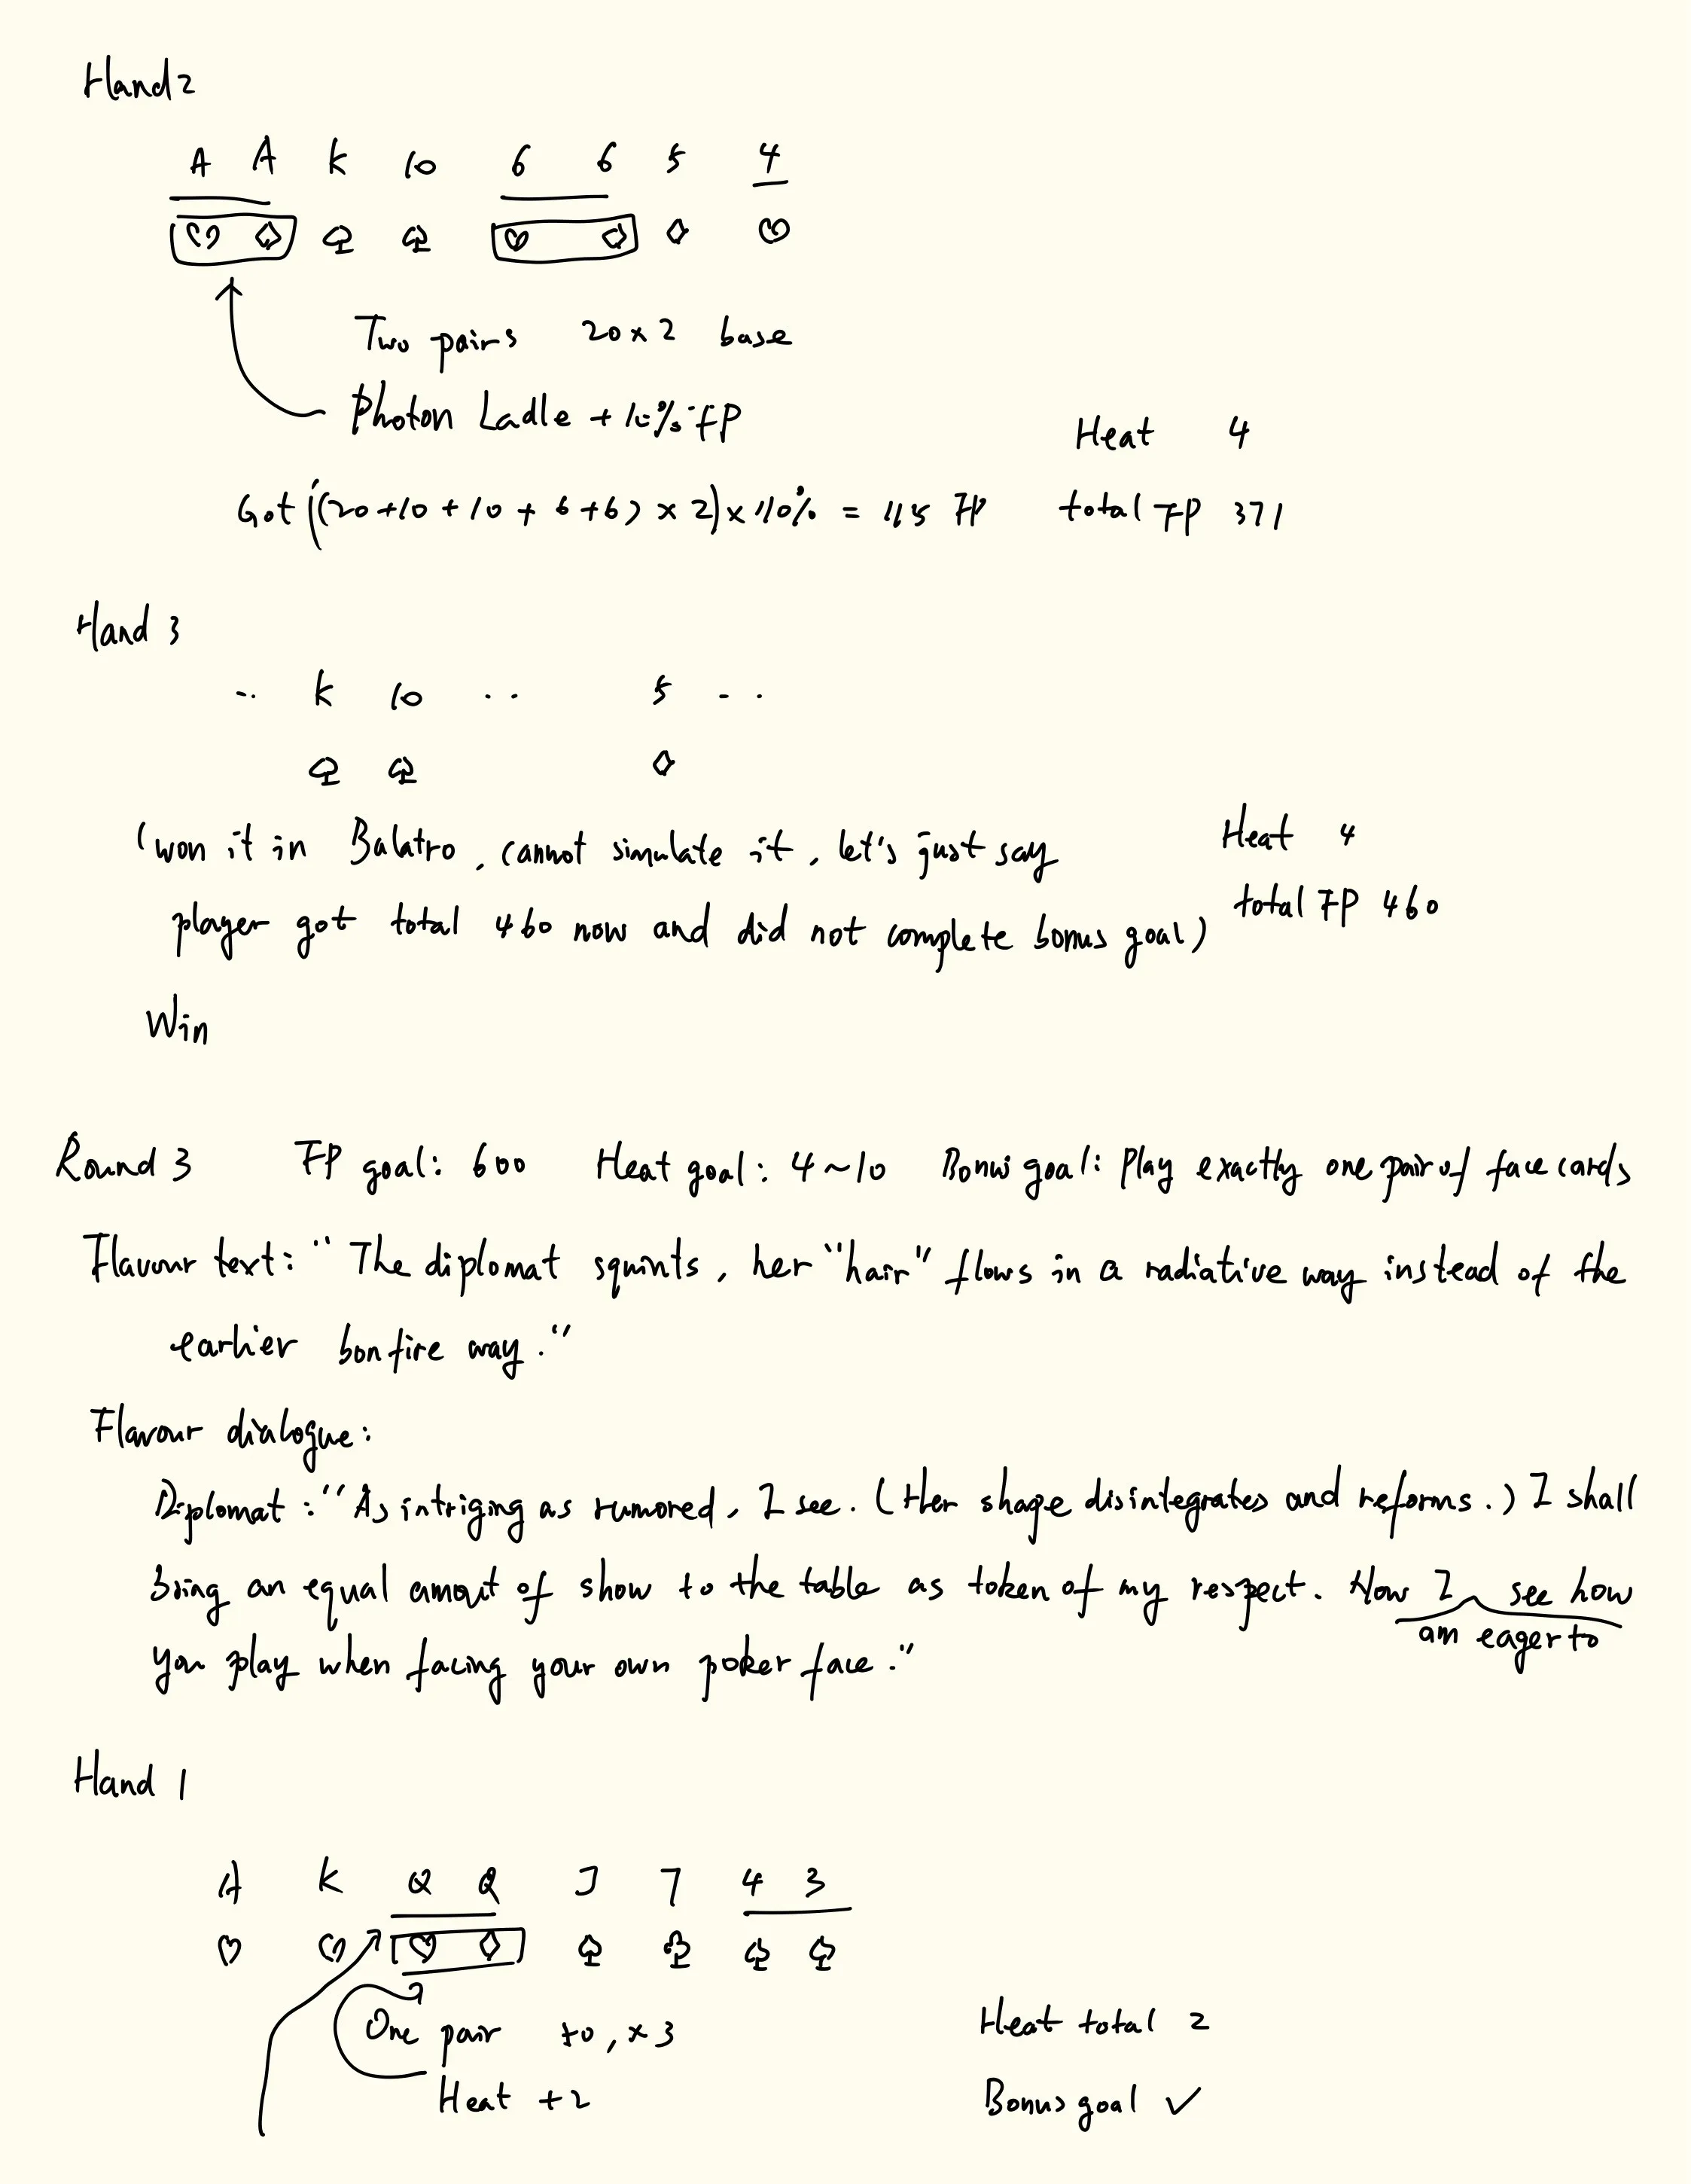 Hand 2
A A K 10 6 6 5 4
♡ ♢ ♤ ♤ ♡ ♢ ♢ ♡
Two pairs 20 x 2 base
Photon Ladle + 10% FP
Heat 4
Got ((20+10+10+6+6) x 2) x 110% = 115 FP total FP 371
Hand 3
.. K 10 .. 5 ..
♤ ♤ ♢
(won it in Balatro, cannot simulate it, let's just say
Heat 4
player got total 460 now and did not complete bonus goal)
total FP 460
Win
Round 3 FP goal: 600 Heat goal: 4~10 Bonus goal: Play exactly one pair of face cards
Flavour text: "The diplomat squints, her "hair" flows in a radiative way instead of the
earlier bonfire way."
Flavour dialogue:
Diplomat: "As intriging as rumored, I see. (Her shape disintegrates and reforms.) I shall
bring an equal amout of show to the table as token of my respect. Now I see how
am eager to
you play when facing your own poker face."
Hand 1
A K Q Q J 7 4 3
♡ ♡ ♡ ♢ ♤ ♧ ♤ ♤
One pair +0, x3
Heat total 2
Heat +2
Bonus goal ✓